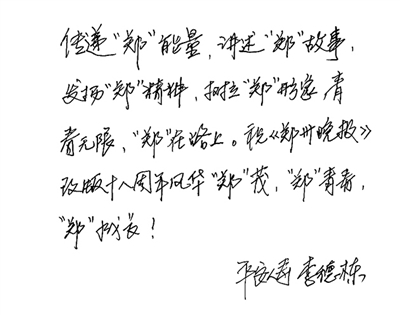 传递“郑”能量，讲述“郑”故事，
发扬“郑”精神，树立“郑”形象，青
春无限，“郑”在路上。祝《郑州晚报》
改版十八周年风华“郑”茂，“郑”青春，
“郑”成长！
平安人寿 李德栋